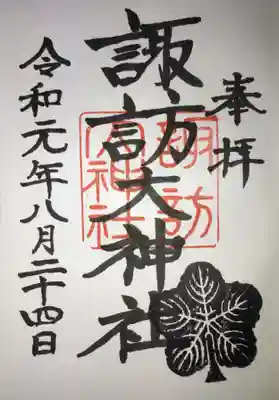 奉拝
諏訪大神社
令和元年八月二十四日
諏訪
大神社